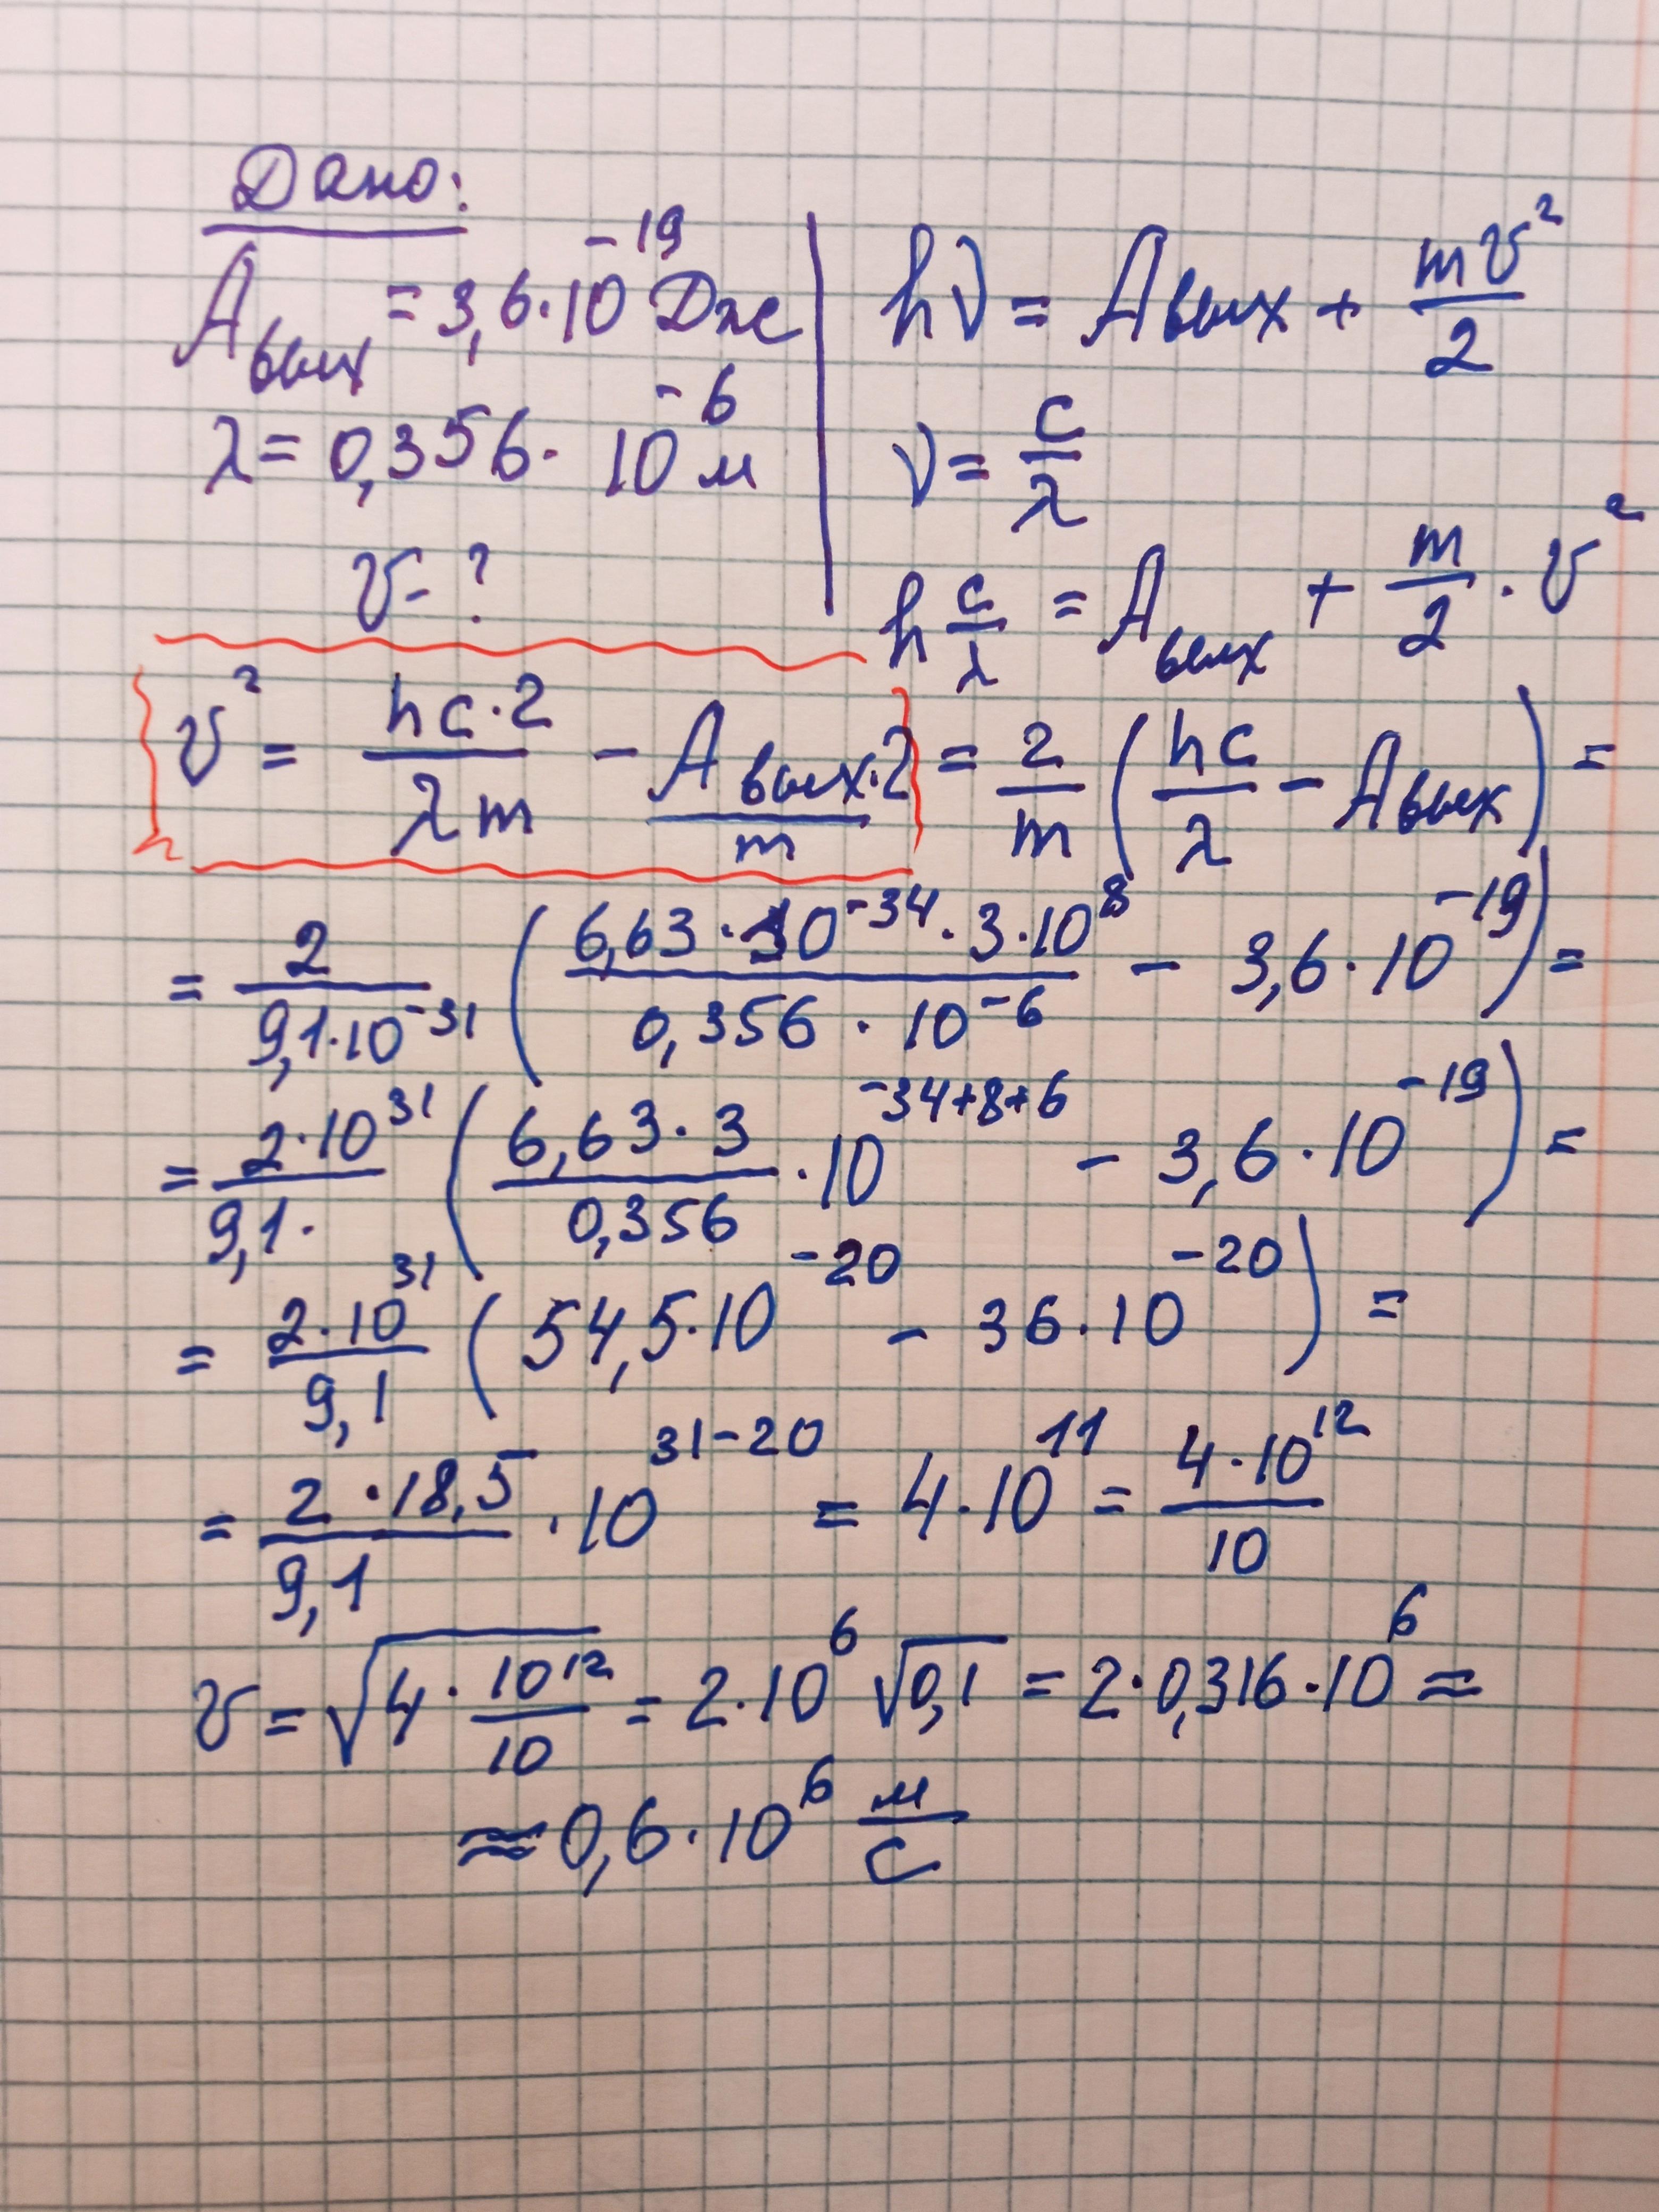 Дано:
Aвых = 3,6·10⁻¹⁹ Дж
λ = 0,356· 10⁻⁶ м
v - ?
hν = Aвых + mv²/2
ν = c/λ
h c/λ = Aвых + m/2 · v²
v² = hc·2/λm - Aвых·2/m = 2/m (hc/λ - Aвых) =
= 2/9,1·10⁻³¹ (6,63·10⁻³⁴·3·10⁸/0,356·10⁻⁶ - 3,6·10⁻¹⁹) =
= 2·10³¹/9,1· (6,63·3/0,356 ·10⁻³⁴⁺⁸⁺⁶ - 3,6·10⁻¹⁹) =
= 2·10³¹/9,1 (54,5·10⁻²⁰ - 36·10⁻²⁰) =
= 2·18,5/9,1 ·10³¹⁻²⁰ = 4·10¹¹ = 4·10¹²/10
v = √(4·10¹²/10) = 2·10⁶ √0,1 = 2·0,316·10⁶ ≈
≈ 0,6·10⁶ м/с